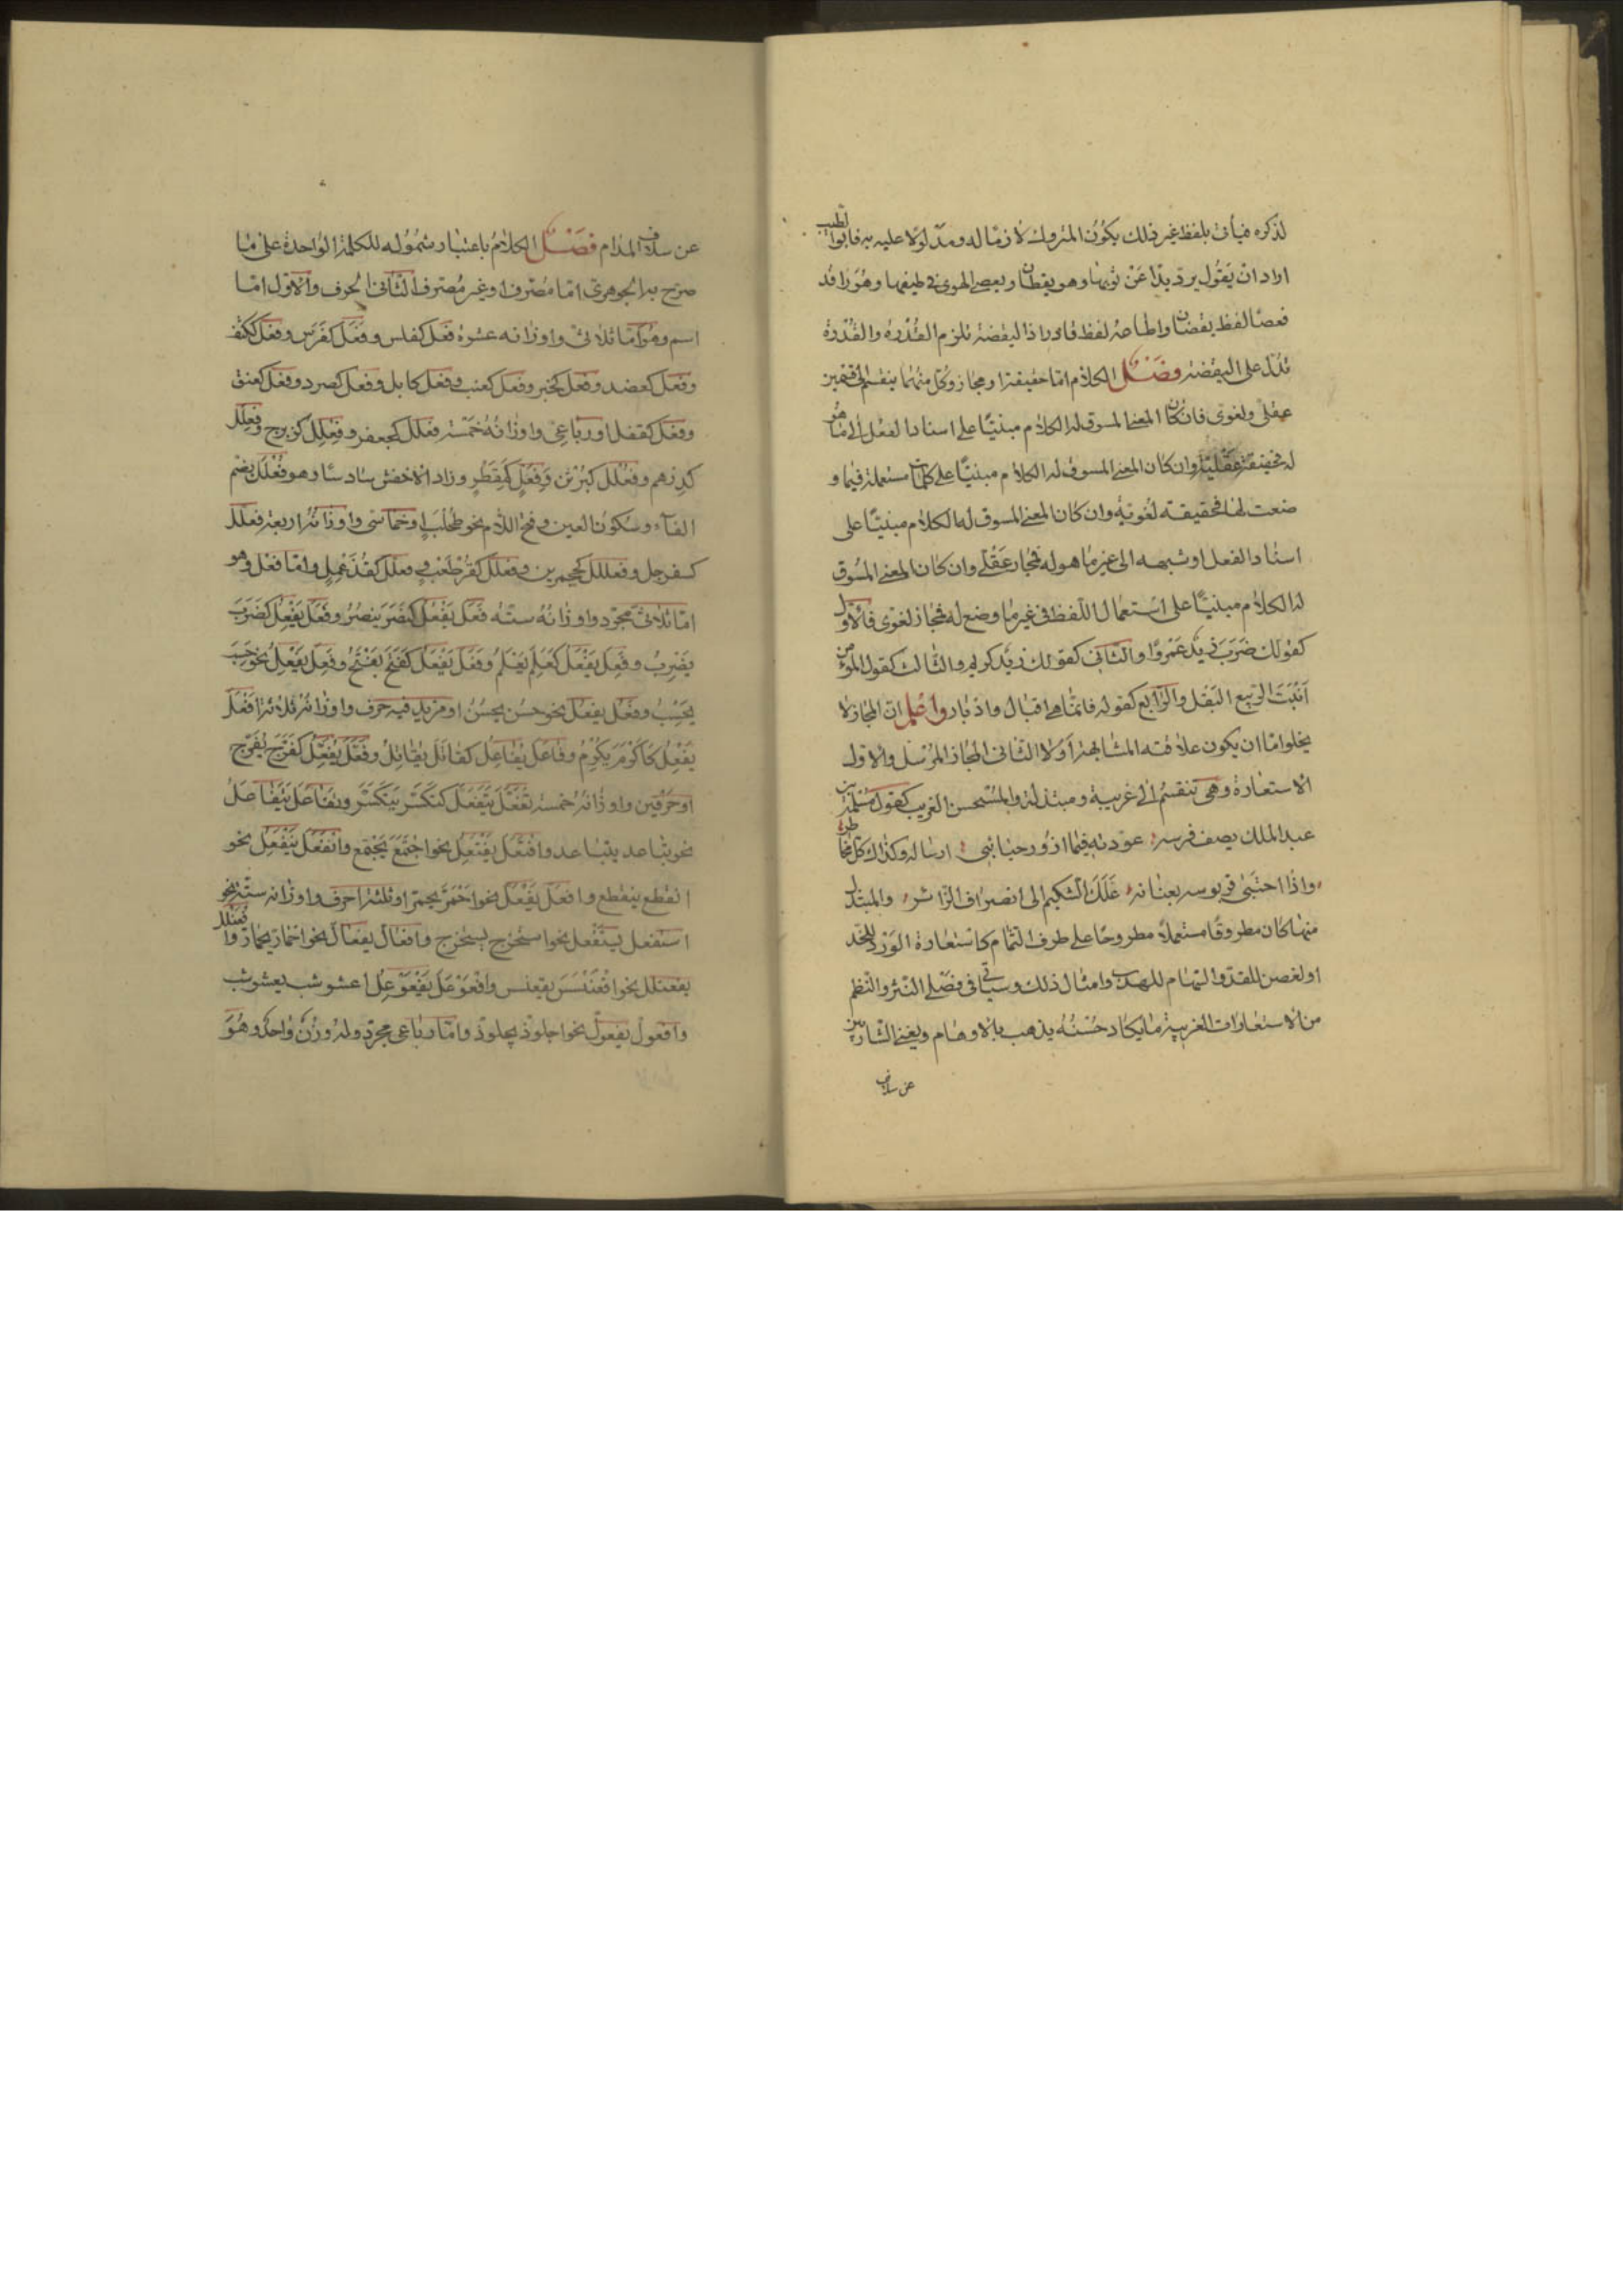 لذكره فيأتى بلفظ غير ذلك يكون المتروك لازما له ومدلولا عليه به فابوا لطيب
اراد ان يقول يرد يدا عن ثوبها وهو يقظان ويعصى الهوى فى طيفها وهو راقد
فعصا لفظ يقضان واطاعه لفظ قادر اذ اليقضة تلزم القدرة والقدرة
تدل على اليقضة فصل الكلام اما حقيقة او مجاز وكل منهما ينقسم الى قسمين
عقلى ولغوى فان كان المعنى المسوق له الكلام مبنيا على اسناد الفعل الى ما هو
له فحقيقة عقلية وان كان المعنى المسوق له الكلام مبنيا على كلمات مستعملة فيما و
ضعت لها فحقيقة لغوية وان كان المعنى المسوق له الكلام مبنيا على
اسناد الفعل او شبهه الى غير ما هو له فمجاز عقلى وان كان المعنى المسوق
له الكلام مبنيا على استعمال اللفظ فى غير ما وضع له فمجاز لغوى فالاول
كقولك ضرب زيد عمروا والثانى كقولك زيد كريم والثالث كقول المؤمن
انبت الربيع البقل والرابع كقوله فانما هى اقبال وادبار واعلم ان المجاز لا
يخلوا ما ان يكون علاقته المشابهة او لا الثانى المجاز المرسل والاول
الاستعارة وهى تنقسم الى غريبة ومبتذلة والمستحسن الغريب كقول مسلمة بن
عبد الملك يصف فرسه عودته فيما ازور حبائبى ارساله وكذاك كل مخاطر
واذا احتبى قربوسه بعنانه علك الشكيم الى انصراف الزائر والمبتذل
منها كان مطروقا مستعملا مطروحا على طرف الثمام كاستعارة الورد للخد
او لغصن للقد والسهام للهدب وامثال ذلك وسيأتى فى فصلى النثر والنظم
من الاستعارات الغريبة ما يكاد حسنه يذهب بالاوهام ويغنى الشاربين
عن سلاف
عن سلاف المدام فصل الكلام باعتبار شموله للكلمة الواحدة على ما
صرح به الجوهرى اما مصرف او غير مصرف الثانى الحرف والاول اما
اسم وهو اما ثلاثى واوزانه عشرة فعل كفلس وفعل كفرس وفعل ككتف
وفعل كعضد وفعل كحبر وفعل كعنب وفعل كابل وفعل كصرد وفعل كعنق
وفعل كقفل او رباعى واوزانه خمسة فعلل كجعفر وفعلل كزبرج وفعلل
كدرهم وفعلل كبرثن وفعل كقمطر وزاد الاخفش سادسا وهو فعلل بضم
الفاء وسكون العين وفتح اللام نحو طحلب او خماسى واوزانه اربعة فعلل
كسفرجل وفعللل كجحمرين وفعلل كقرطعب وفعلل كقذعمل واما فعل وهو
اما ثلاثى مجرد واوزانه ستة فعل يفعل كنصر ينصر وفعل يفعل كضرب
يضرب وفعل يفعل كعلم يعلم وفعل يفعل كفتح يفتح وفعل يفعل نحو حسب
يحسب وفعل يفعل نحو حسن يحسن او مزيد فيه حرف واوزانه ثلاثة افعل
يفعل كاكرم يكرم وفاعل يفاعل كقاتل يقاتل وفعل يفعل كفرج يفرج
او حرفين واوزانه خمسة تفعل يتفعل كتكسر يتكسر وتفاعل يتفاعل
نحو تباعد يتباعد وافتعل يفتعل نحو اجتمع يجتمع وانفعل ينفعل نحو
انقطع ينقطع وافعل يفعل نحو احمر يحمر او ثلثة احرف واوزانه ستة نحو
استفعل يستفعل نحو استخرج يستخرج وافعال يفعال نحو احمار يحمار وافعنلل
يفعنلل نحو اقعنسس يقعنس وافعوعل يفعوعل اعشوشب يعشوشب
وافعول يفعول نحو اجلوذ يجلوذ واما رباعى مجرد وله وزن واحد وهو